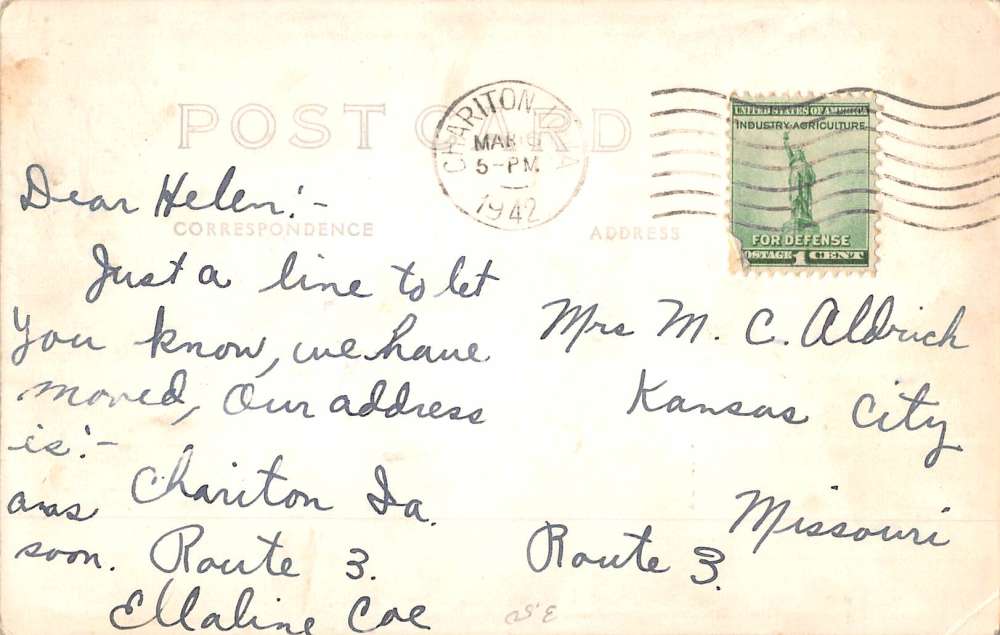 POST CARD
CHARITON
IA
MAR 9
5-PM
1942
UNITED STATES OF AMERICA
INDUSTRY AGRICULTURE
FOR DEFENSE
POSTAGE 1 CENT
CORRESPONDENCE
ADDRESS
Dear Helen:-
Just a line to let
you know, we have
moved, Our address
is:-
Chariton Ia.
Route 3.
ans
soon.
Ellaline Coe
Mrs M. C. Aldrich
Kansas City
Missouri
Route 3.